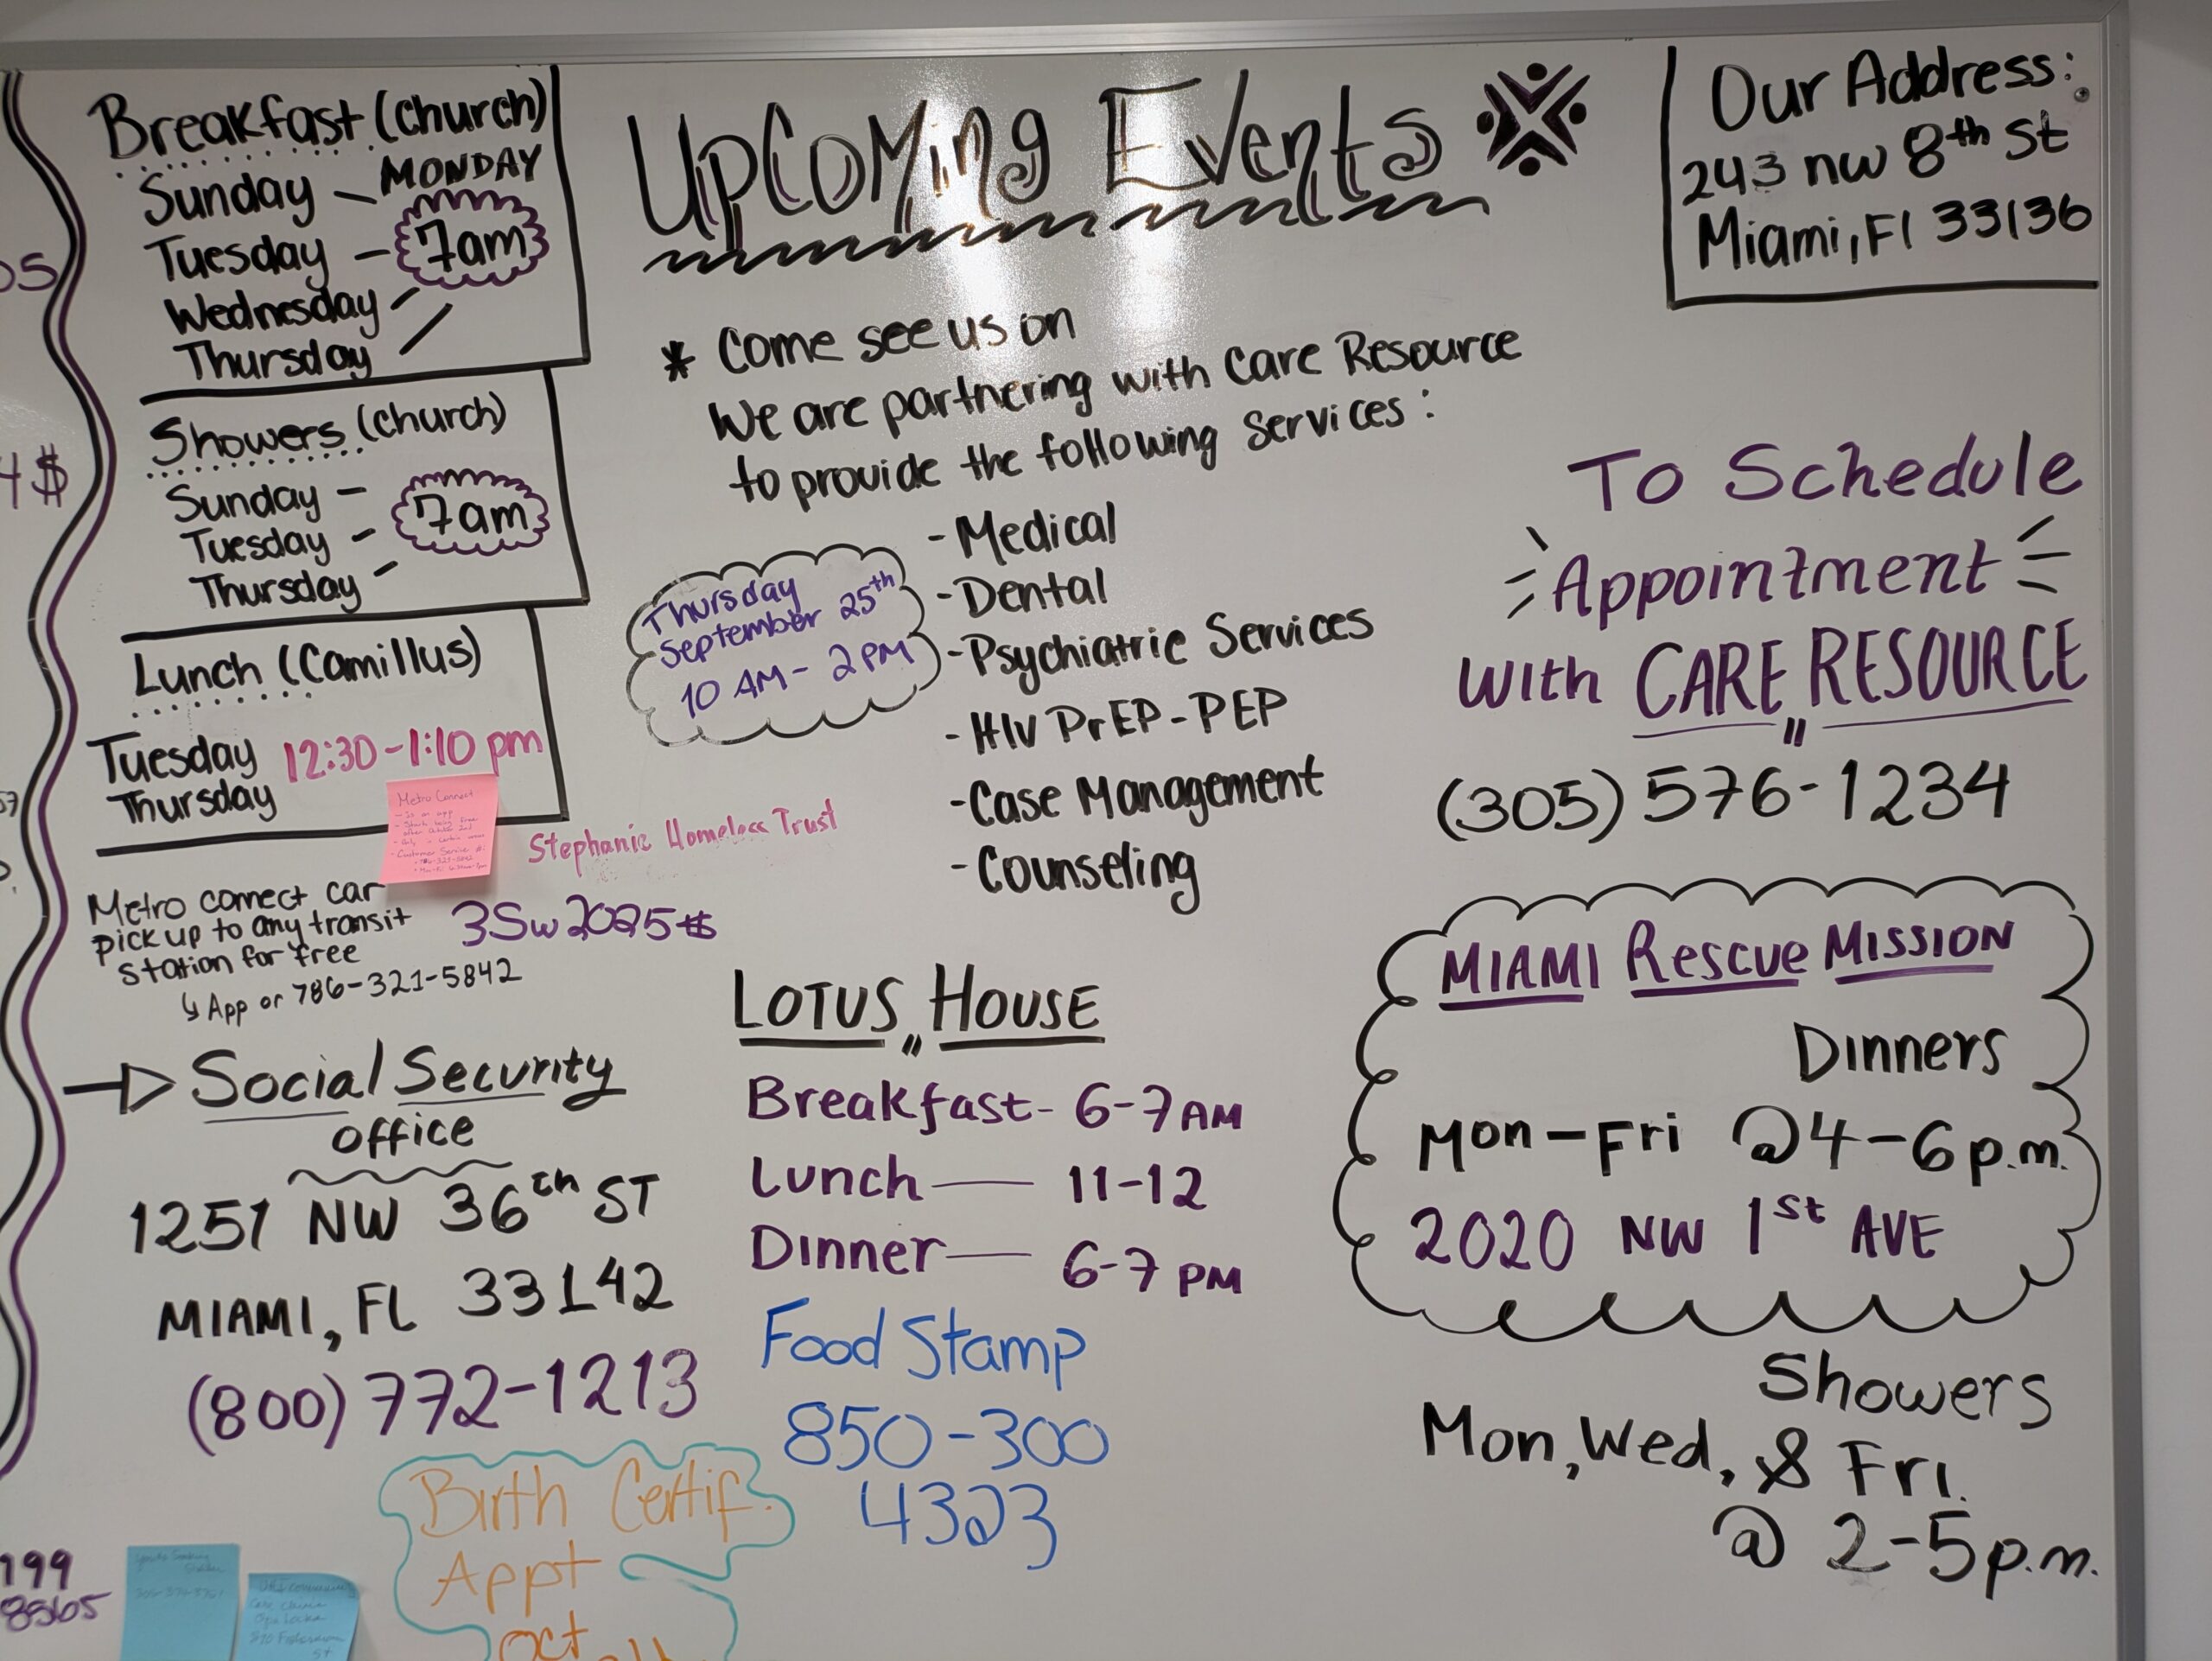 Breakfast (church)
Sunday – MONDAY
Tuesday – 7am
Wednesday
Thursday
Showers (church)
Sunday –
Tuesday – 7am
Thursday –
Lunch (Camillus)
Tuesday 12:30-1:10 pm
Thursday
Metro Connect
- Is an app
Customer Service #:
786-321-5842
Stephanie Homeless Trust
Metro connect car
pick up to any transit
station for free
↳ App or 786-321-5842
3Sw2025$
→ Social Security
office
1251 NW 36th ST
MIAMI, FL 33142
(800) 772-1213
Birth Certif.
Appt
oct
Upcoming Events
* Come see us on
We are partnering with Care Resource
to provide the following services:
Thursday
September 25th
10 AM - 2PM
- Medical
- Dental
- Psychiatric Services
- HIV PrEP-PEP
- Case Management
- Counseling
LOTUS HOUSE
Breakfast- 6-7 AM
Lunch — 11-12
Dinner — 6-7 PM
Food Stamp
850-300
4323
Our Address:
243 nw 8th St
Miami, Fl 33136
To Schedule
Appointment
with CARE RESOURCE
(305) 576-1234
MIAMI Rescue MISSION
Dinners
Mon-Fri @4-6p.m.
2020 NW 1st AVE
Showers
Mon, Wed, & Fri.
@ 2-5p.m.
05
4$
57
199
8565